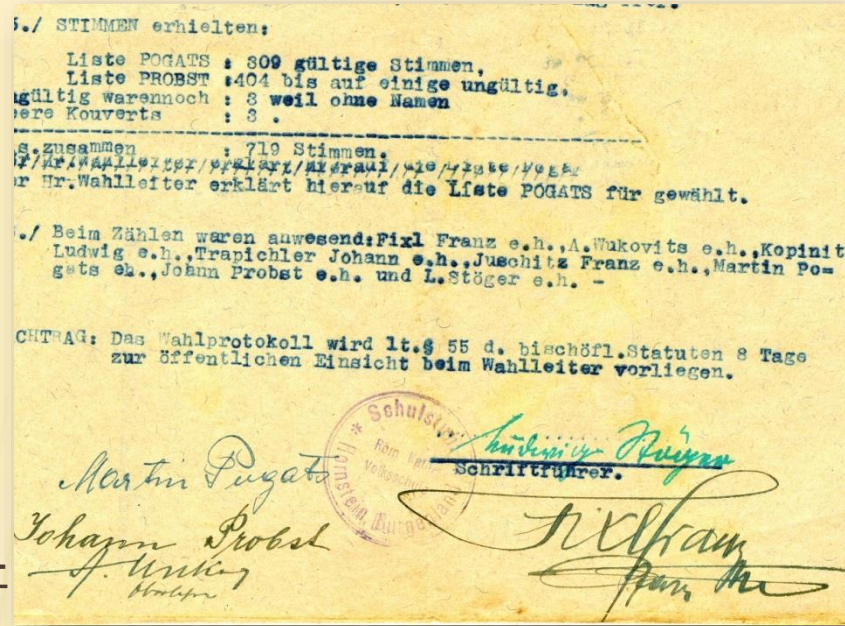 5./ STIMMEN erhielten:
Liste POGATS : 309 gültige Stimmen,
Liste PROBST :404 bis auf einige ungültig.
ngültig warennoch : 3 weil ohne Namen
eere Kouverts : 3 .
s.zusammen : 719 Stimmen.
r Hr.Wahlleiter erklärt hierauf die Liste POGATS für gewählt.
./ Beim Zählen waren anwesend:Fixl Franz e.h.,A.Wukovits e.h.,Kopinit
Ludwig e.h.,Trapichler Johann e.h.,Juschitz Franz e.h.,Martin Po=
gats eh.,Johann Probst e.h. und L.Stöger e.h. -
CHTRAG: Das Wahlprotokoll wird lt.§ 55 d. bischöfl.Statuten 8 Tage
zur öffentlichen Einsicht beim Wahlleiter vorliegen.
* Schulstuhl
Röm. kath.
Volksschule
Hornstein, Burgenland
Ludwig Stöger
Schriftführer.
Martin Pogats
Johann Probst
Fixl Franz